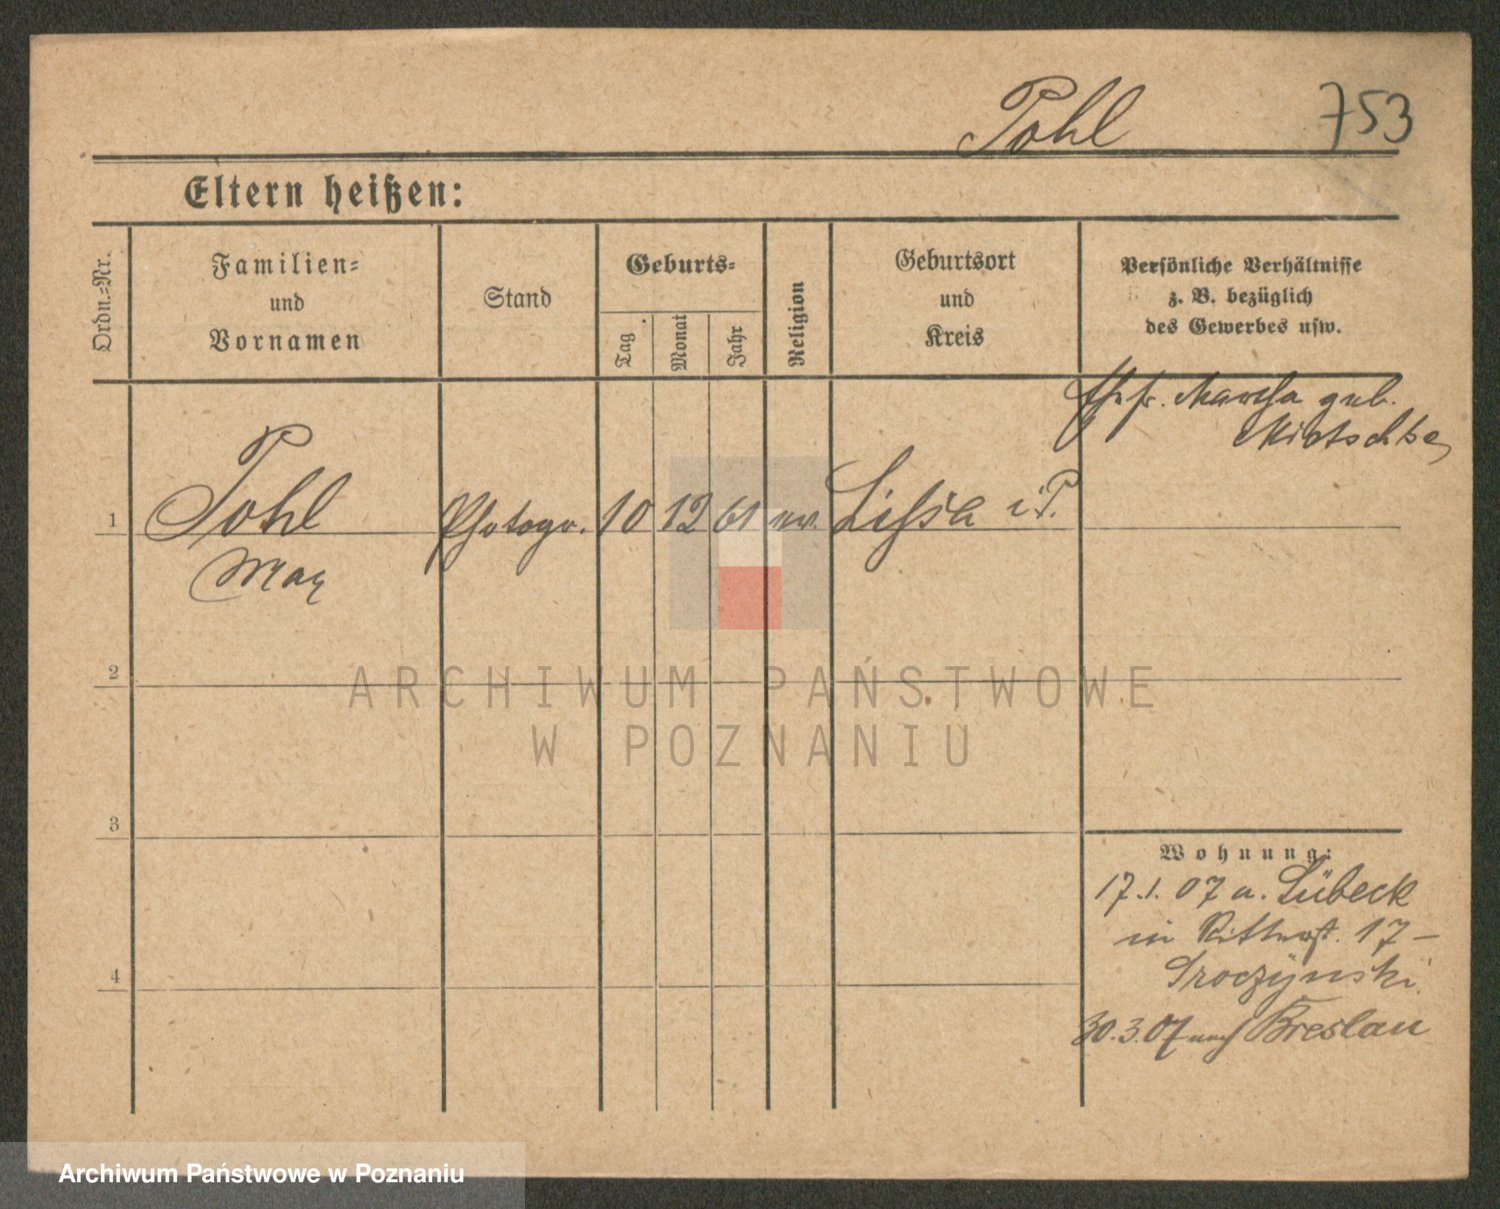 Pohl 753
Eltern heißen:
Ordn.-Nr.
Familien-
und
Vornamen
Stand
Geburts-
Tag
Monat
Jahr
Religion
Geburtsort
und
Kreis
Persönliche Verhältnisse
z. B. bezüglich
des Gewerbes usw.
Ehefr. Martha geb.
1 Pohl Photogr. 10 12 61 ev. Lissa i P.
Max
2
3
4
Wohnung:
17.1.07 a. Lübeck
in Ritterst. 17 –
30.3.07 nach Breslau
ARCHIWUM PAŃSTWOWE
W POZNANIU
Archiwum Państwowe w Poznaniu